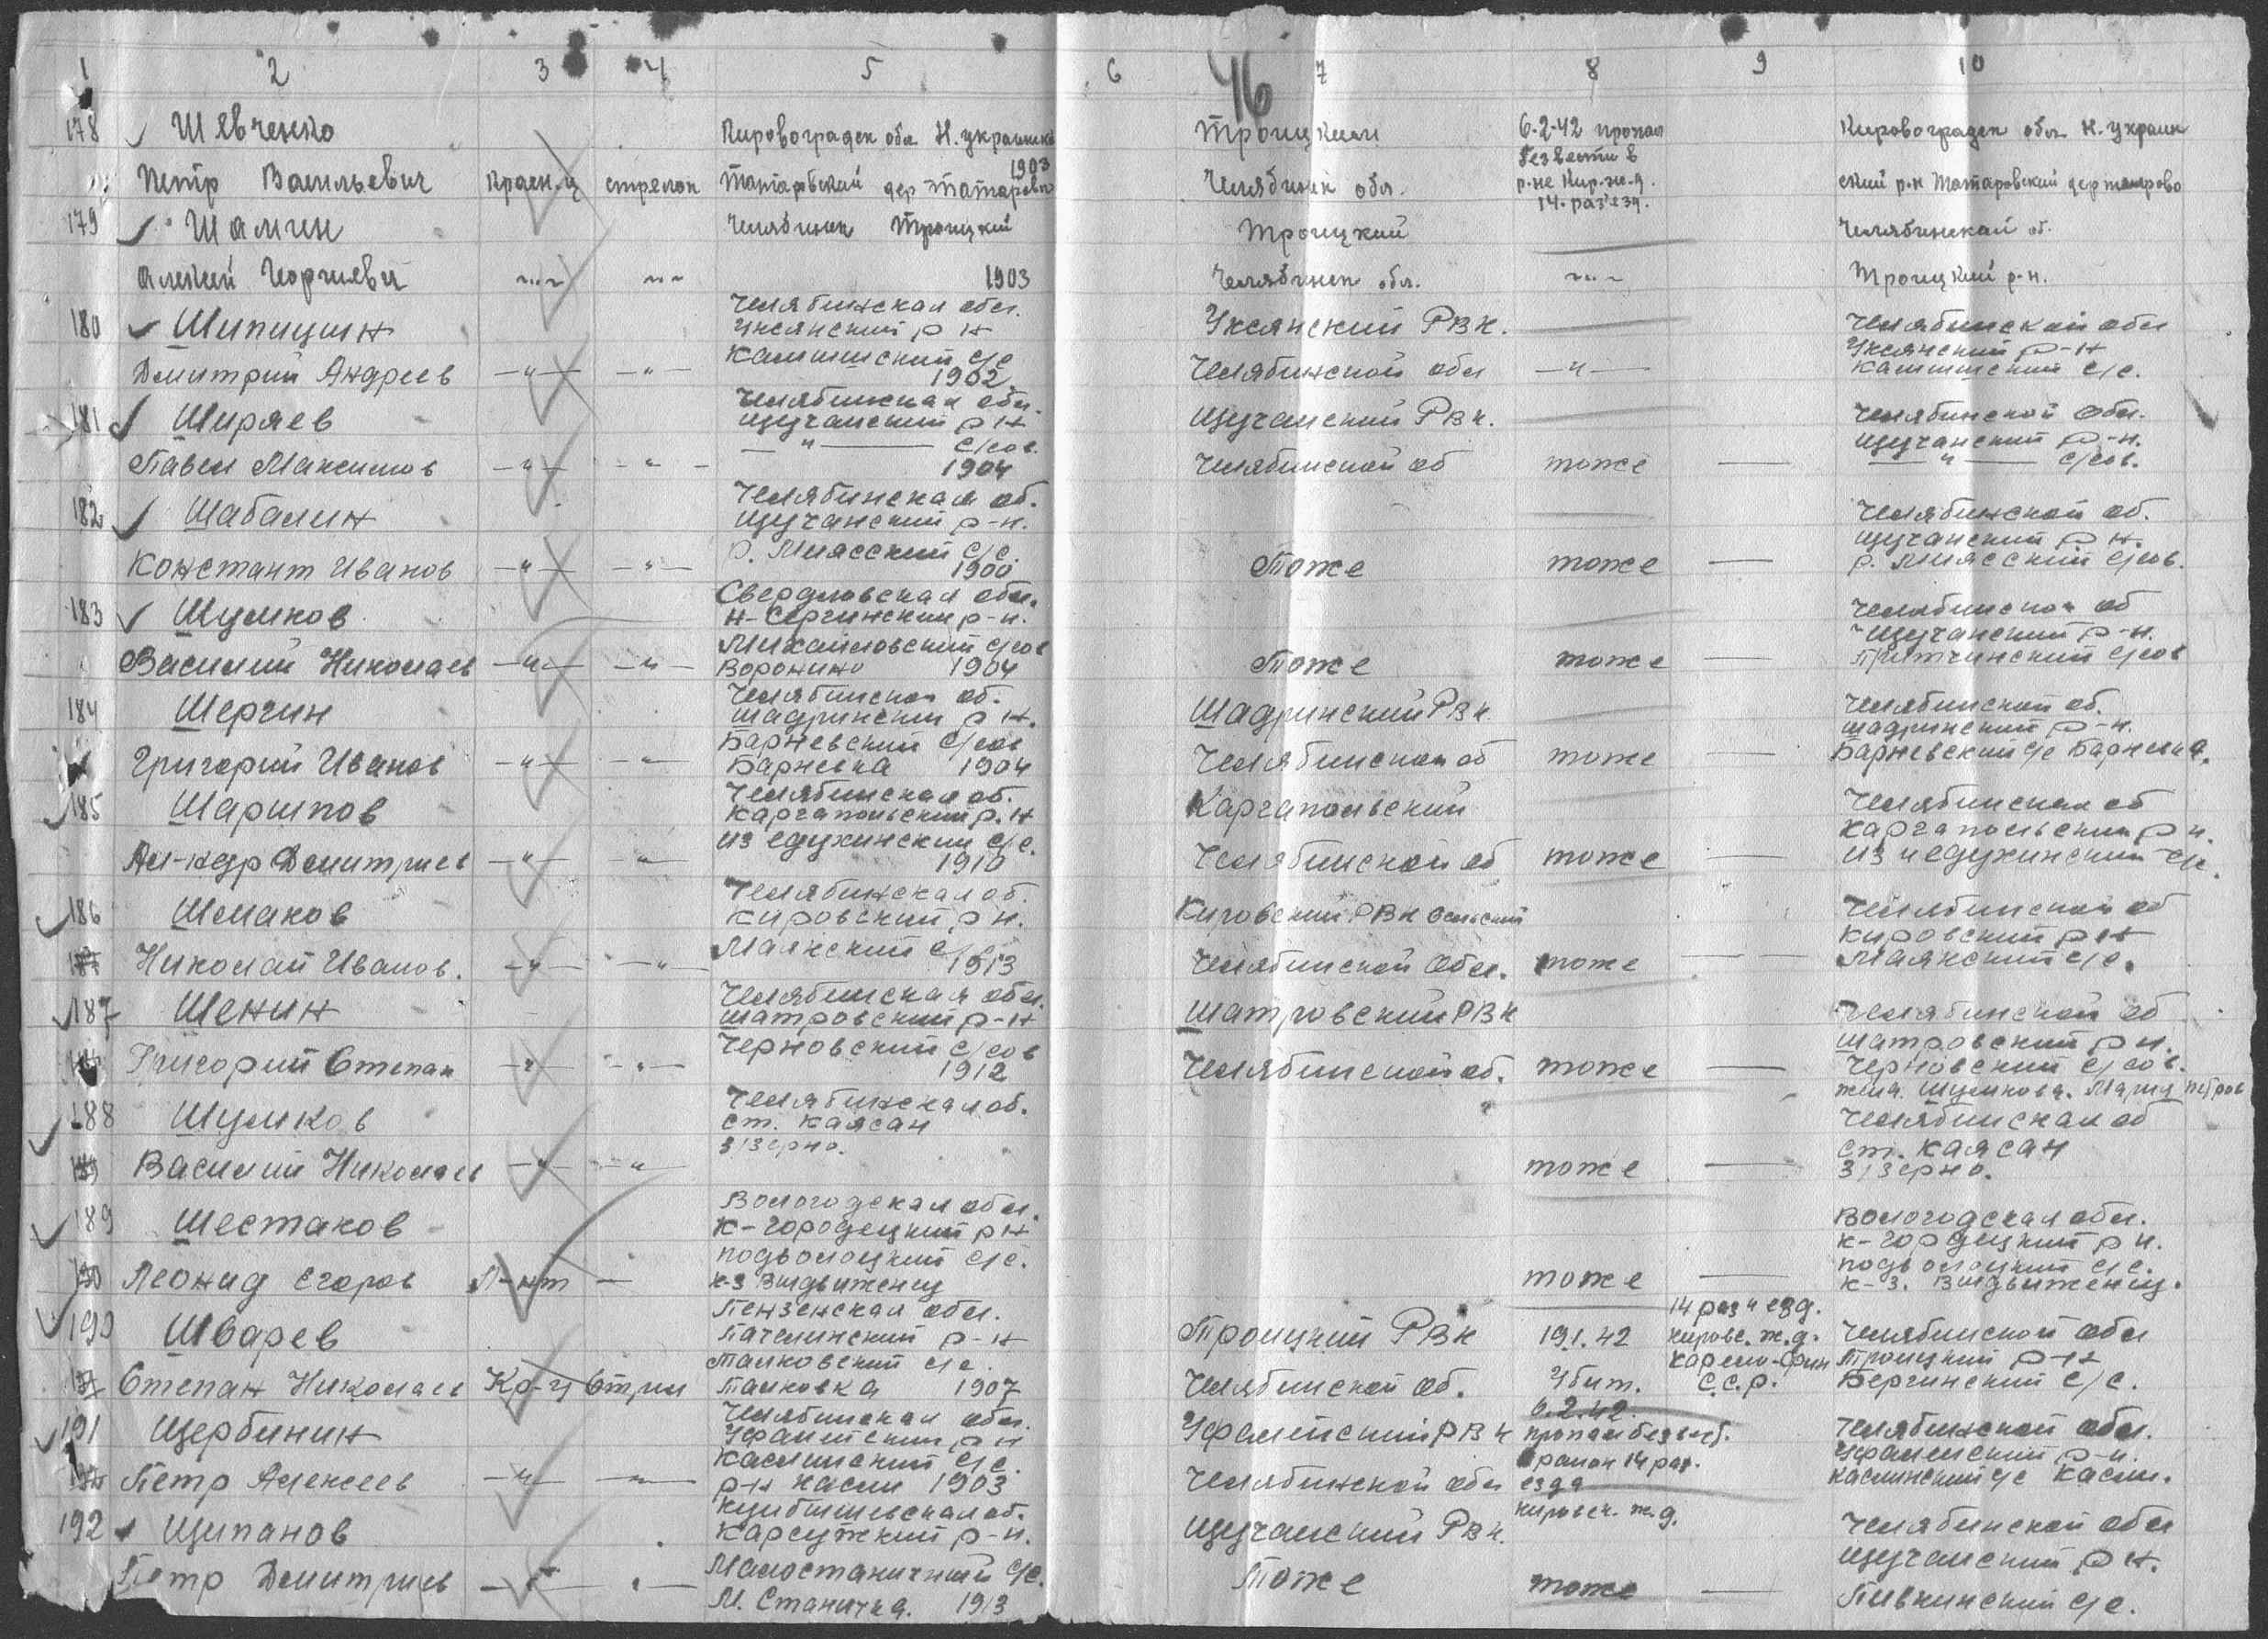 1 2 3 4 5 6 7 8 9 10
46
178 Шевченко Кировоградск обл Н. украинка Троицким 6-2-42 пропал Кировоградск обл. Н. украин
Петр Васильевич красн-ц стрелок Татаровский дер Татарово 1903 Челябинск обл. безвести в р-не Кир. ж-д. 14. раз'езд. ский р-н Татаровский дер татарово
179 Шамин Челябинск Троицкий Троицкий Челябинской об.
Алексей Георгиевич -"- -"- 1903 Челябинск обл. -"- Троицкий р-н.
180 Шипицин Челябинская обл. Уксянский р-н Уксянский РВК. Челябинской обл Уксянский р-н
Дмитрий Андреев -"- -"- Камышский с/с 1902 Челябинской обл -"- Камышский с/с.
181 Ширяев Челябинская обл. Щучанский р-н Щучанский РВК. Челябинской Обл. Щучанский р-н.
Павел Максимов -"- -"- -"- с/сов. 1904 Челябинской об тоже — -"- с/сов.
182 Шабалин Челябинская об. Щучанский р-н. Челябинской об. Щучанский р-н.
Констант Иванов -"- -"- р. Миясский с/с. 1900 Тоже тоже — р. Миясский с/сов.
183 Шумков Свердловская обл. Н-Сергинский р-н. Челябинской об Щучанский р-н.
Василий Николаев -"- -"- Михайловский с/сов Воронино 1904 Тоже тоже — с/сов
184 Шергин Челябинской об. Шадринский р-н. Шадринский РВК Челябинской об. Шадринский р-н.
Григорий Иванов -"- -"- Барневский с/сов Барневка 1904 Челябинской об тоже — Барневский с/с Барневка.
185 Шарипов Челябинская об. Каргапольский р.н Каргапольский Челябинская об Каргапольский р н.
Ал-кдр Дмитриев -"- -"- с/с. 1910 Челябинской об тоже — с/с.
186 Шмаков Челябинская об. Кировский р н. Кировский РВК Челябинской об Кировский р-н
Николай Иванов. -"- -"- Маякский с/ 1913 Челябинской Обл. тоже — Маякский с/с.
187 Шенин Челябинская обл. Шатровский р-н Шатровский РВК Челябинской об Шатровский р н.
Григорий Степан -"- -"- Черновский с/сов 1912 Челябинской об. тоже — Черновский с/сов.
жена. Шумкова. Мария Петров
188 Шумков Челябинская об. ст. Каясан Челябинская об
Василий Николаев -"- -"- з/зерно. тоже — ст. Каясан з/зерно.
189 Шестаков Вологодская обл. К-Городецкий р н Вологодская обл. К-Городецкий р н.
Леонид Егоров Л-нт — подволоцкий с/с. к-з Выдвиженец тоже — подволоцкий с/с. к-з. Выдвиженец.
190 Шварев Пензенская обл. Пачелинский р-н Троицкий РВК 19.1.42 14 раз'езд. кировс. ж.д. Челябинской обл
Степан Николаев Кр-ц Стрел Талковский с/с. Талковка 1907 Челябинской об. Убит. Карело-Фин С.С.р. Троицкий р-н Бергинский с/с.
191 Щербинин Челябинская обл. Уфалейский р н Уфалейский РВК 6.2.42. пропал без вес. Челябинской обл. Уфалейский р-н.
Петр Алексеев -"- -"- Каслинский с/с. р-н Касли 1903 Челябинской обл район 14 раз. езда кировск. ж.д. Каслинский с/с Касли.
192 Щипанов Куйбышевская об. Карсунский р-н. Щучанский РВК. Челябинской обл Щучанский р-н.
Петр Дмитриев -"- -"- Малостаничный с/с. М. Станичка. 1913 Тоже тоже — Пивкинский с/с.